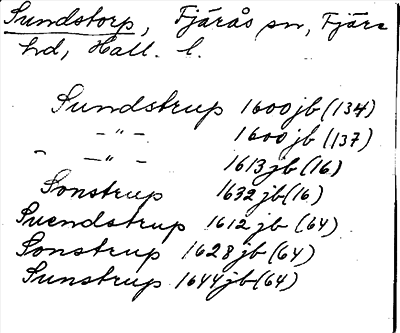 Sundstorp, Fjärås sn, Fjäre
hd, Hall. l.
Sundstrup 1600 jb (134)
- " - 1600 jb (137)
- " - 1613 jb (16)
Sonstrup 1632 jb (16)
Suendstrup 1612 jb (64)
Sonstrup 1628 jb (64)
Sunstrup 1644 jb (64)